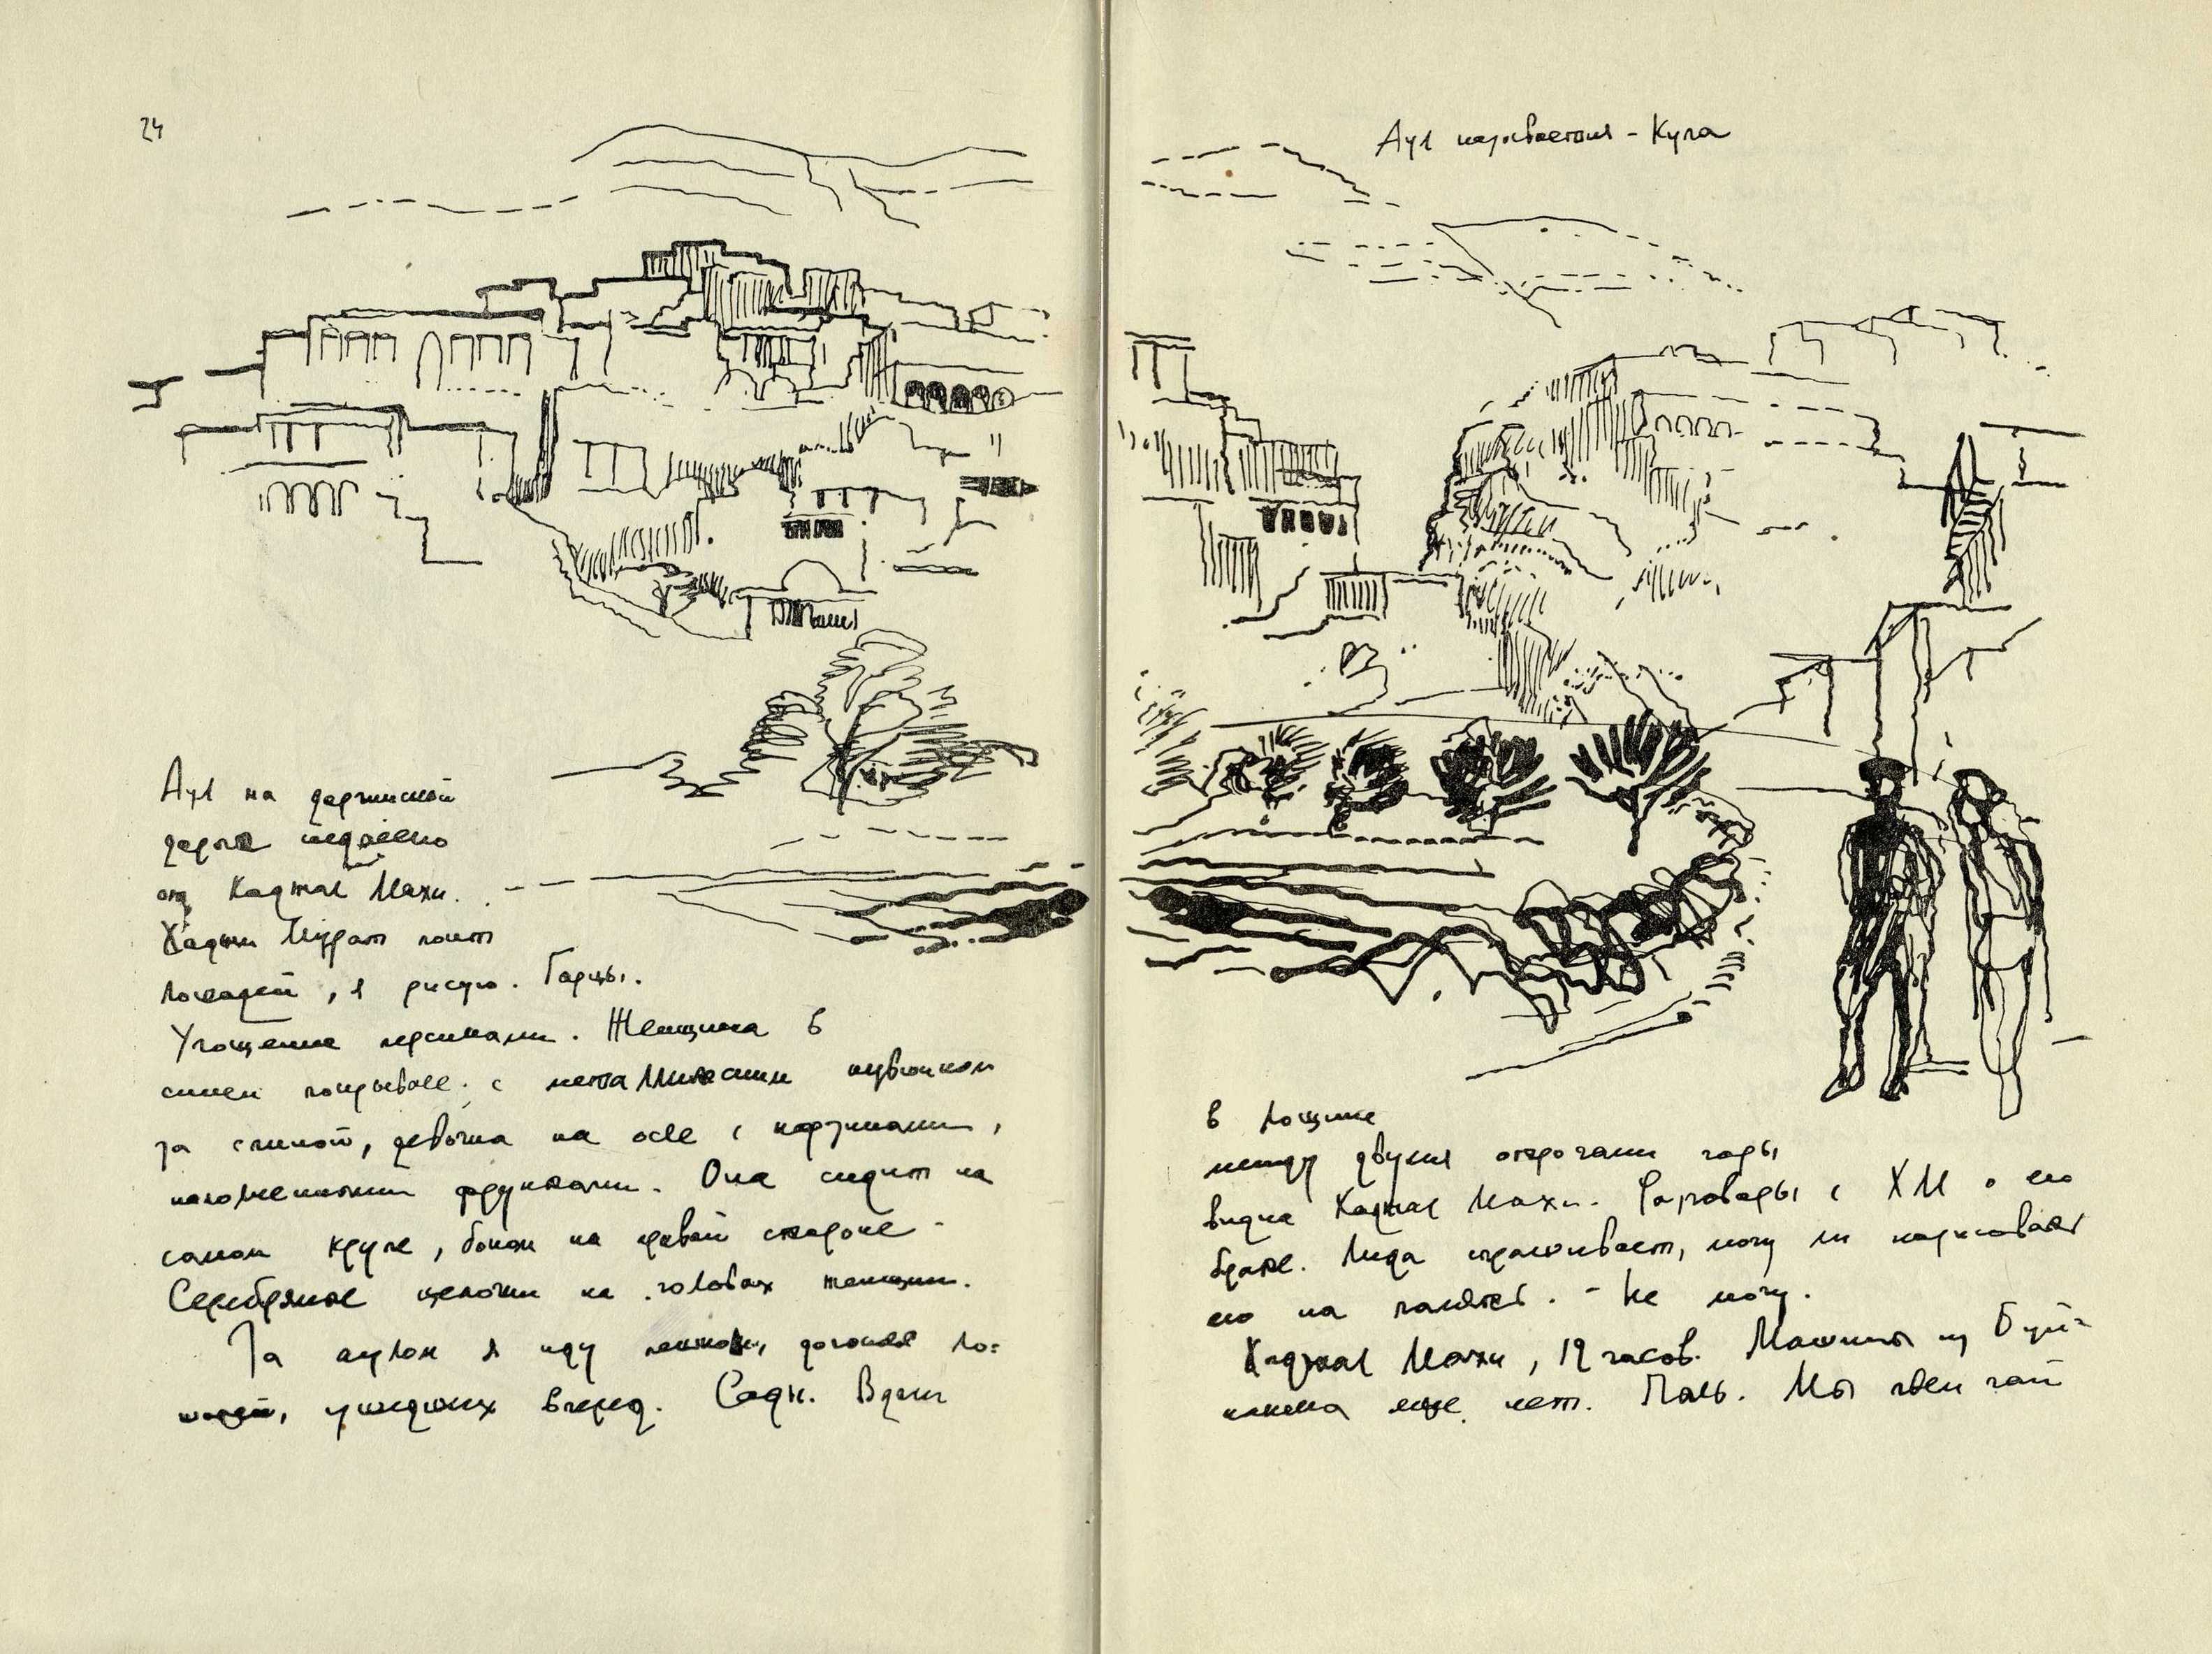 24
Аул на даргинской
дороге недалеко
от Хаджал Махи.
Хаджи Мурат поит
лошадей, я рисую. Горцы.
Угощение персиками. Женщина в
синем покрывале с металлическим кувшином
за спиной, девочка на осле с корзинами,
наполненными фруктами. Она сидит на
самом крупе, боком на правой стороне
Серебряные цепочки на головах женщин.
За аулом я иду пешком, догоняя ло=
шадей, ушедших вперед. Сады. Вдали
Аул называется - Куппа
в лощине
между двумя отрогами горы
видна Хаджал Махи. Разговоры с ХМ о его
брате. Лида спрашивает, могу ли нарисовать
его на память. - Не могу.
Хаджал Махи, 12 часов. Машины из Буй=
накска еще нет. Пыль. Мы пьем чай